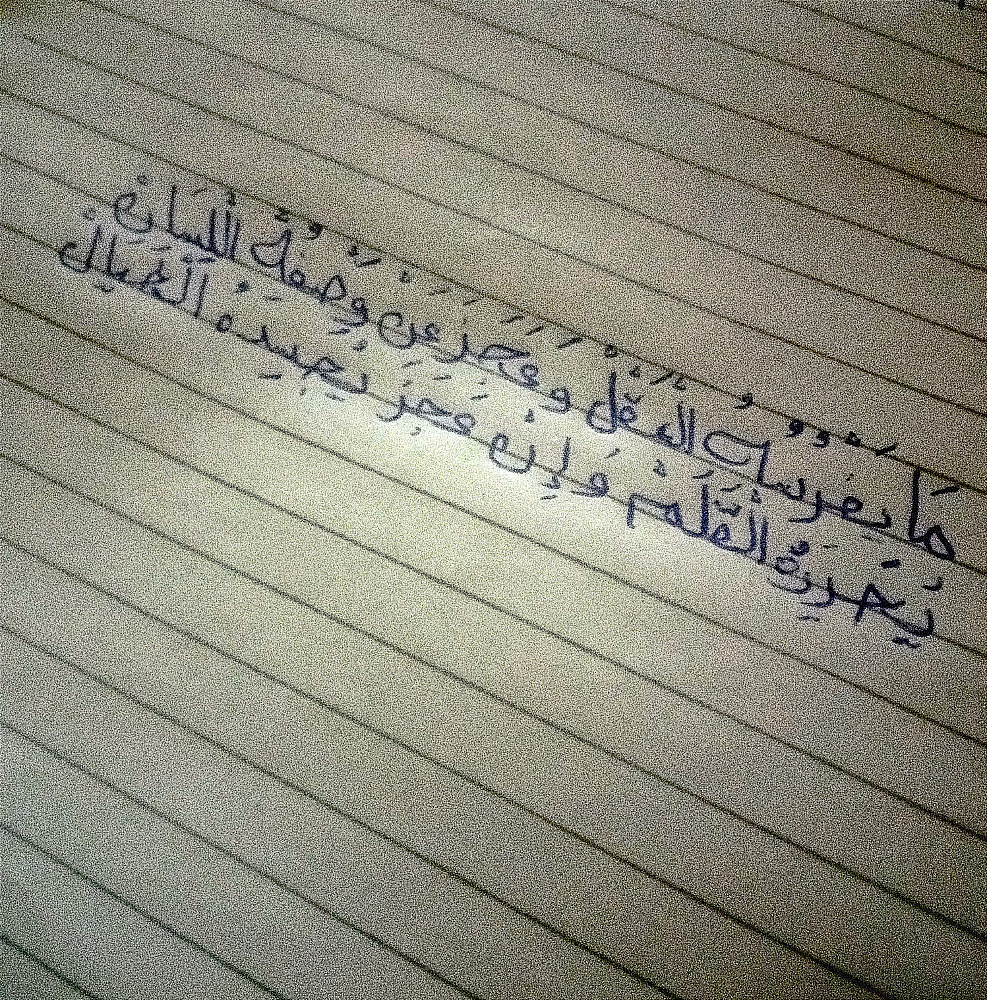 مَا يغرسُهُ العقْلُ وعَجَزَ عَنْ وَصْفِهُ الْلِسَانْ
يَحَرِرهُ الْقَلَمْ وَإِنْ عَجِزَ يُجَسِدَهُ الْخَيَالْ